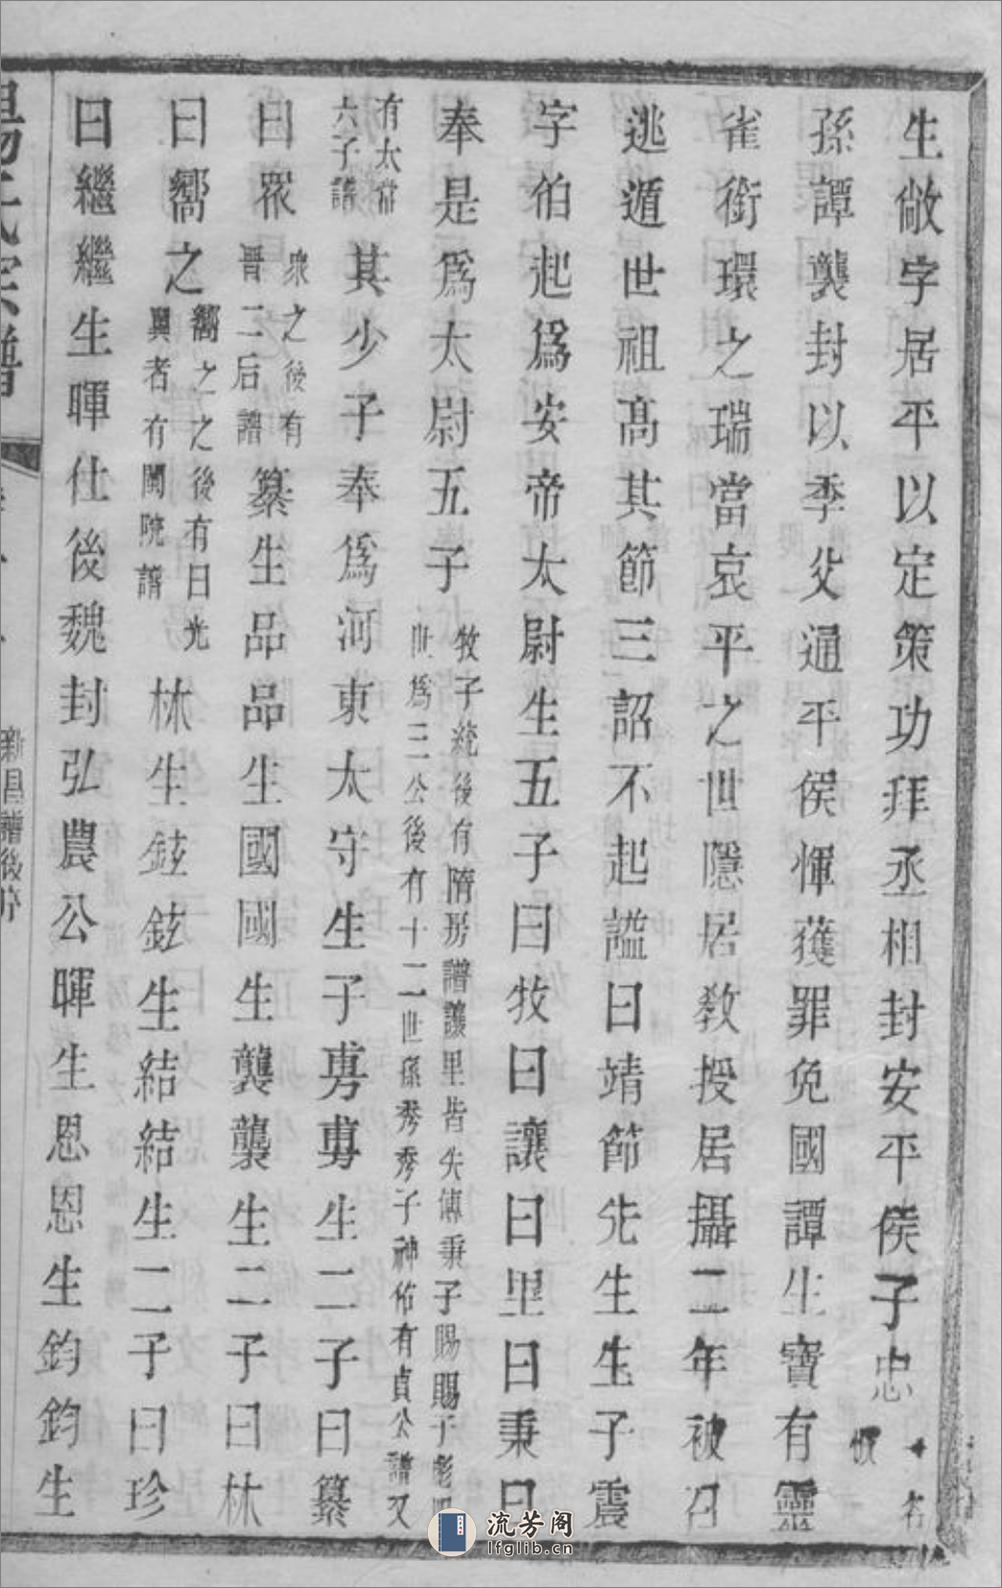 生敞字居平以定策功拜丞相封安平侯子忠
孫譚襲封以季父通平侯惲獲罪免國譚生寶有靈
雀銜環之瑞當哀平之世隱居教授居攝二年被召
逃遁世祖高其節三詔不起謚曰靖節先生生子震
字伯起爲安帝太尉生五子曰牧曰讓曰里曰秉曰
奉是爲太尉五子
牧子統後有隋房譜讓里皆失傳秉子賜賜子彪四
世爲三公後有十二世孫秀秀子神佑有貞公譜又
有太常
六子譜
其少子奉爲河東太守生子旉旉生二子曰纂
曰眾
衆之後有
晋二后譜
纂生品品生國國生襲襲生二子曰林
曰嚮之
嚮之之後有日光
興者有閬院譜
林生鉉鉉生結結生二子曰珍
曰繼繼生暉仕後魏封弘農公暉生恩恩生鈞鈞生
楊氏宗譜
新昌譜後序
流芳阁
lfglib.cn